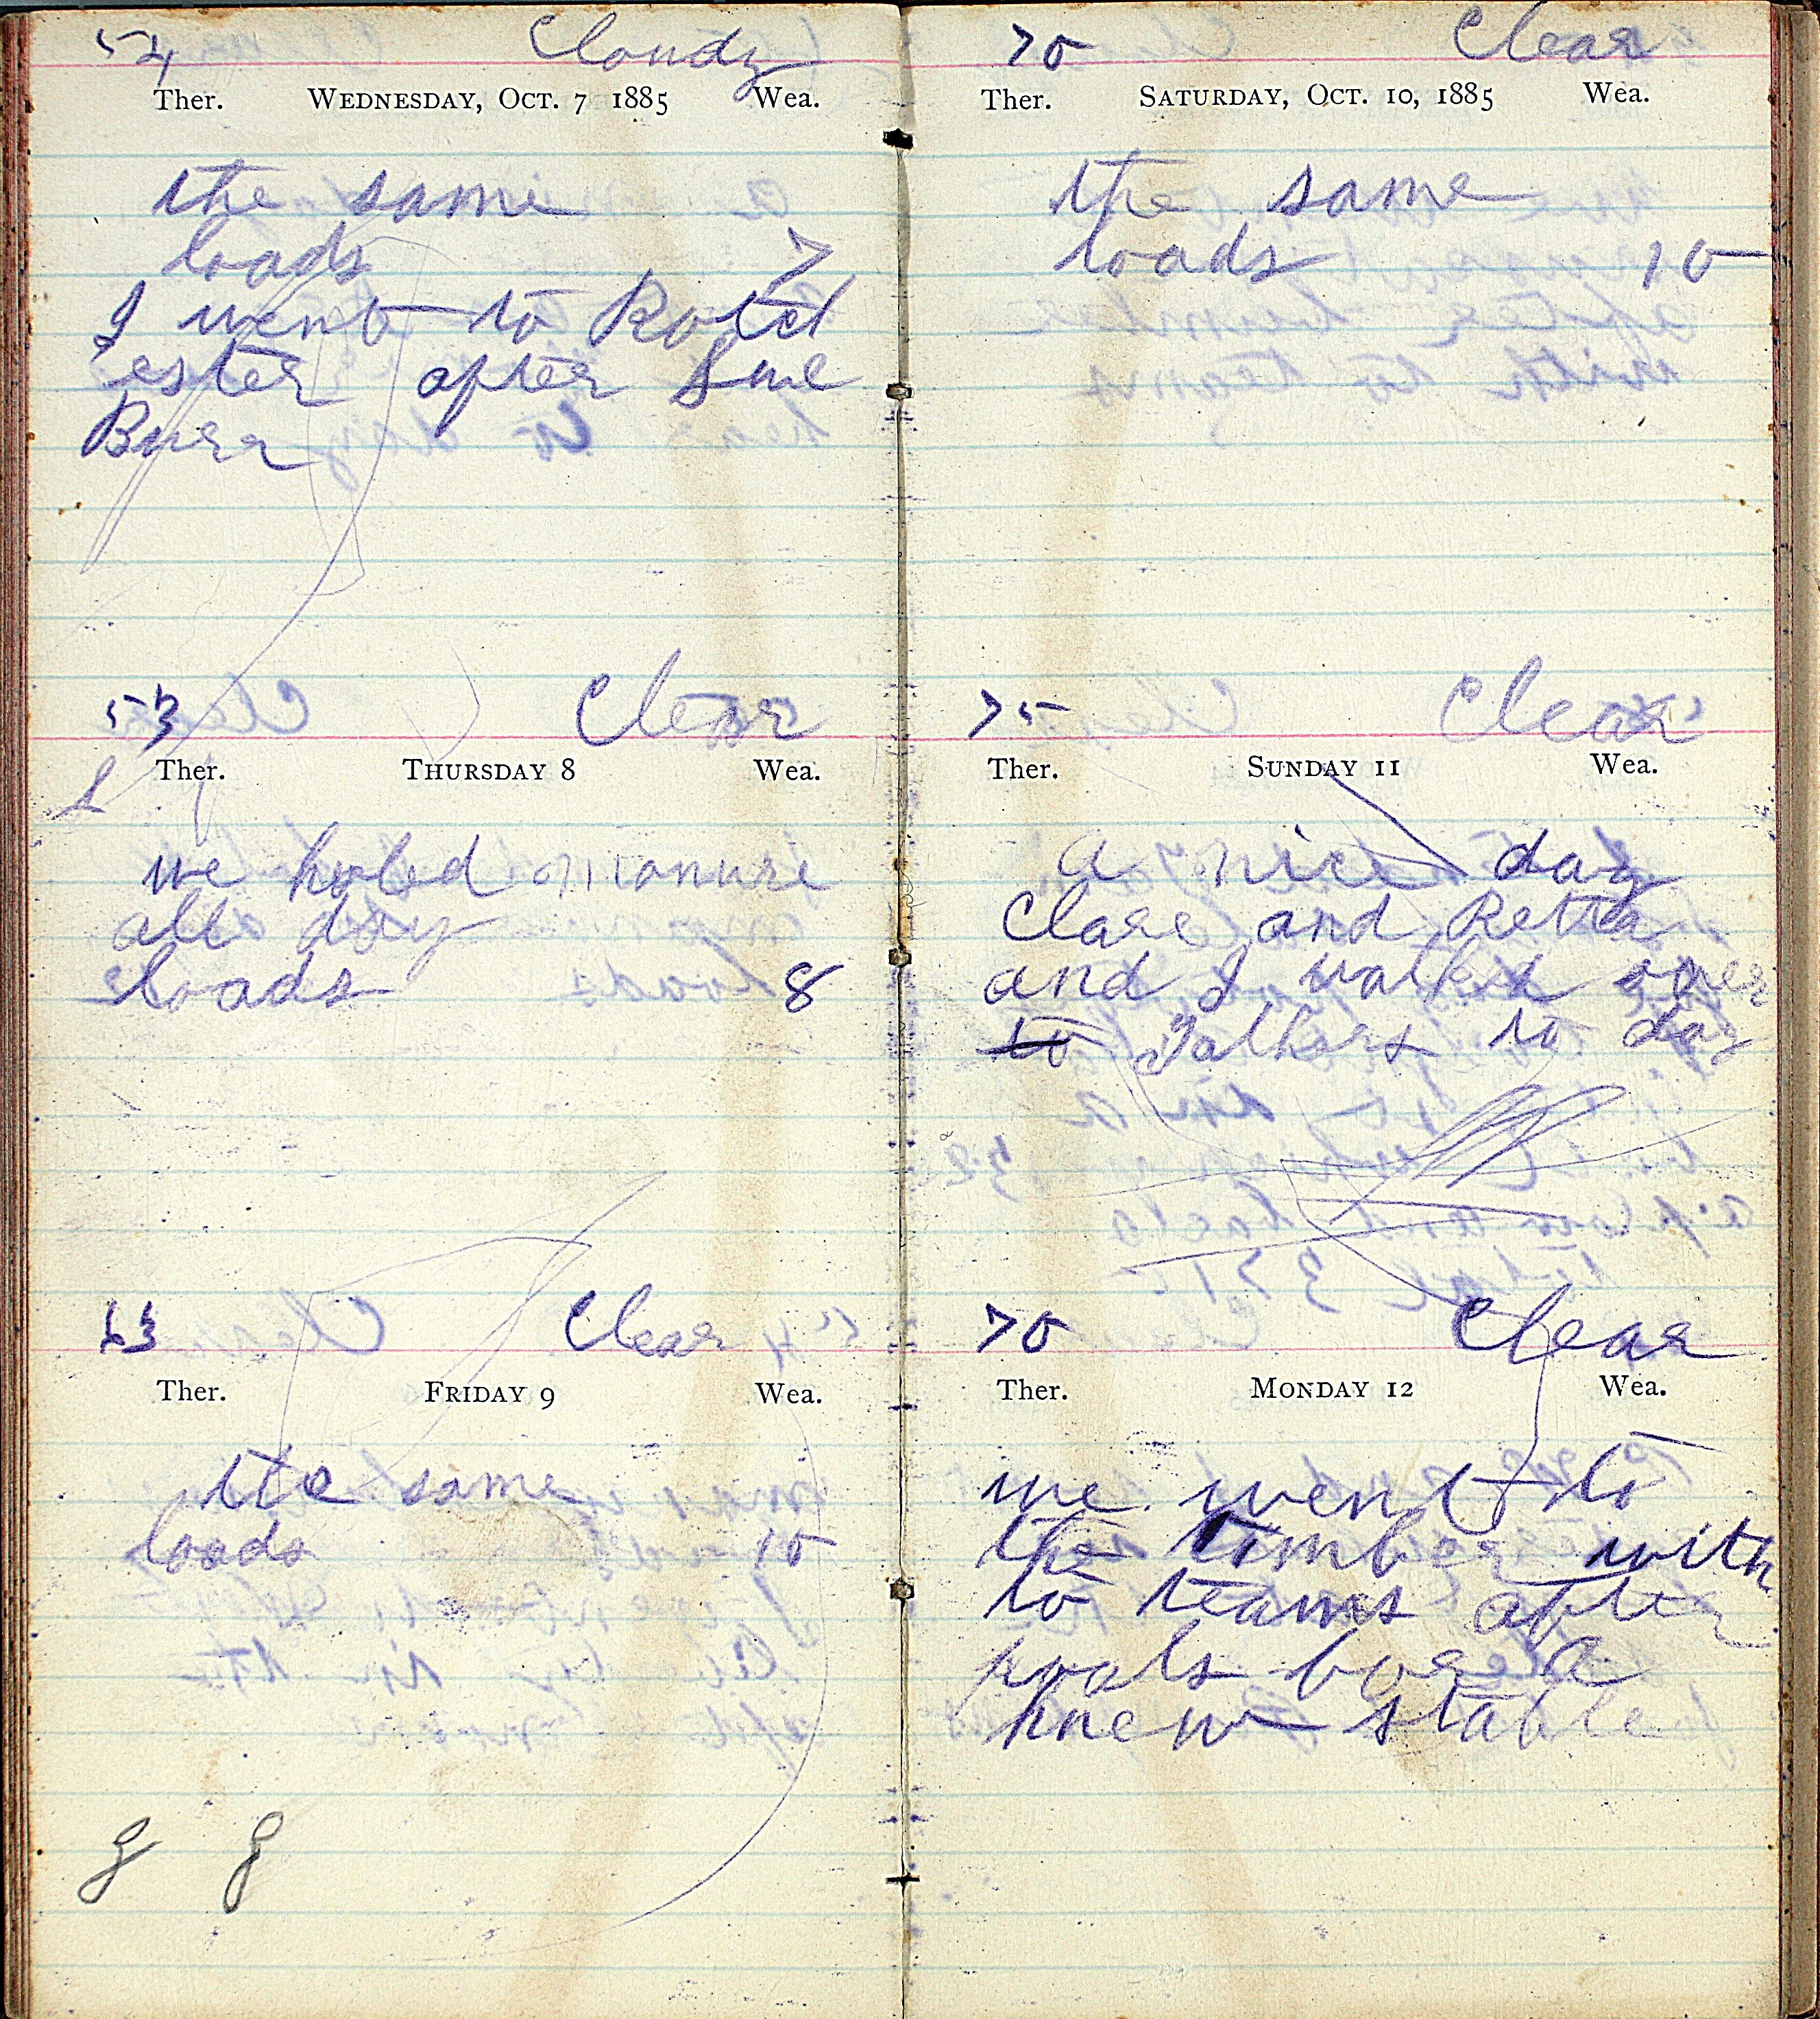 54 Cloudy
Ther. WEDNESDAY, OCT. 7 1885 Wea.
the same
loads 7
I went to Rotch
ester after Sue
Burr
53 Clear
Ther. THURSDAY 8 Wea.
we holed manure
all day
loads 8
63 Clear
Ther. FRIDAY 9 Wea.
the same
loads 10
g g
70 Clear
Ther. SATURDAY, OCT. 10, 1885 Wea.
the same
loads 10
75 Clear
Ther. SUNDAY 11 Wea.
a nice day
Clare and Retta
and I walked over
to Fathers to day
70 Clear
Ther. MONDAY 12 Wea.
we went to
the timber with
to teams after
for a
knew stable